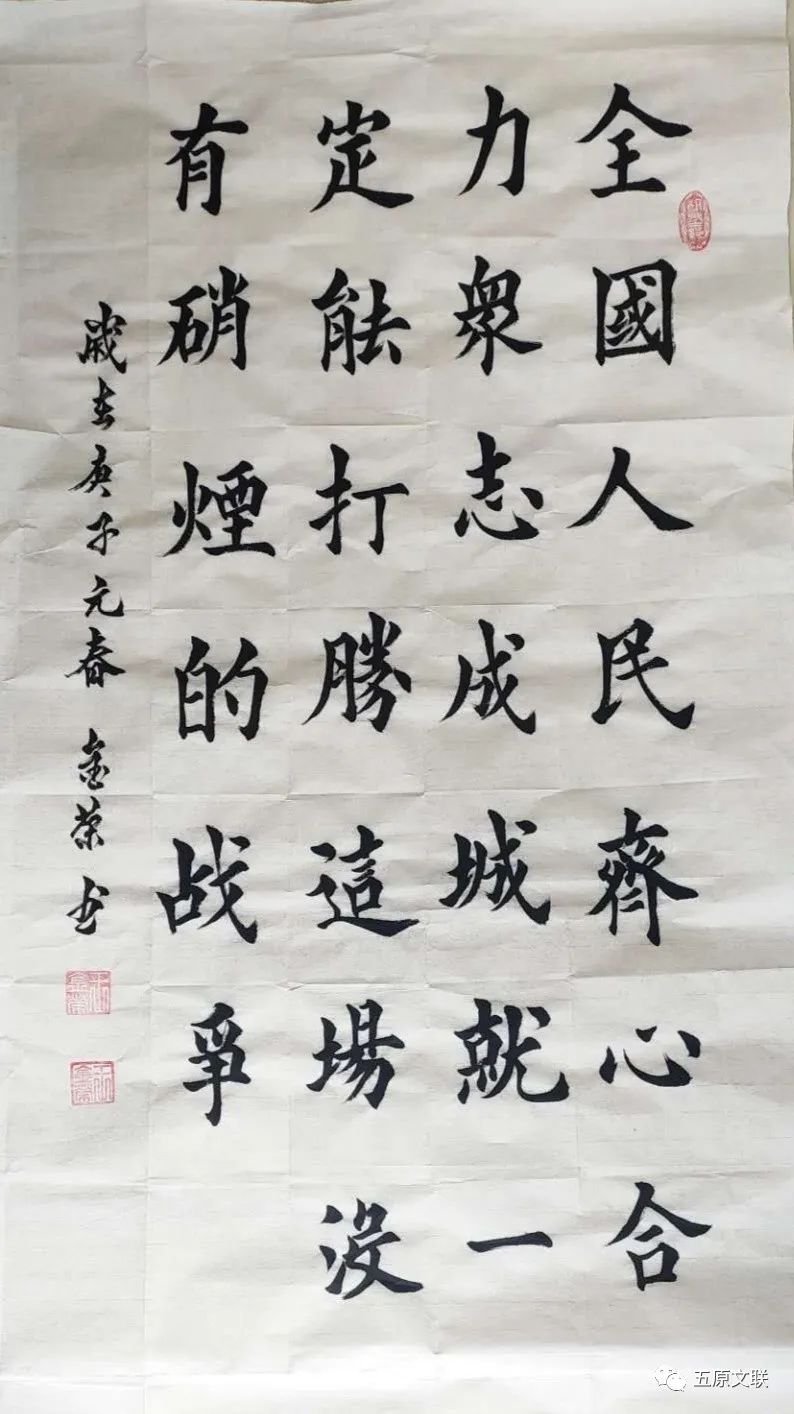 全國人民齊心合
力衆志成城就一
定能打勝這場没
有硝煙的战爭
歲在庚子元春 金荣书
五原文联